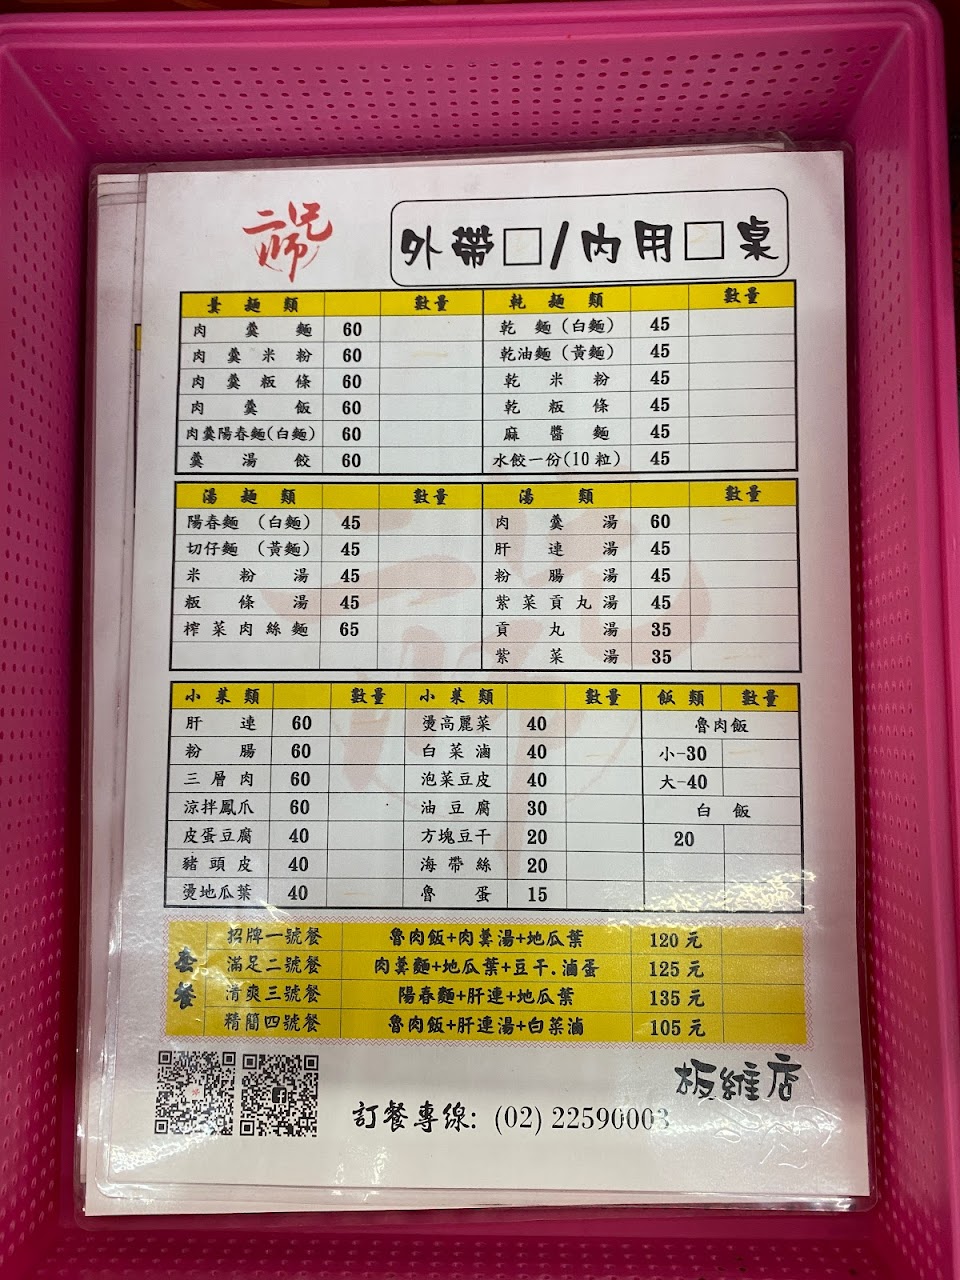 二師兄
外帶□/內用□桌
羹麵類 數量 乾麵類 數量
肉羹麵 60 乾麵(白麵) 45
肉羹米粉 60 乾油麵(黃麵) 45
肉羹粄條 60 乾米粉 45
肉羹飯 60 乾粄條 45
肉羹陽春麵(白麵) 60 麻醬麵 45
羹湯餃 60 水餃一份(10粒) 45
湯麵類 數量 湯類 數量
陽春麵 (白麵) 45 肉羹湯 60
切仔麵 (黃麵) 45 肝連湯 45
米粉湯 45 粉腸湯 45
粄條湯 45 紫菜貢丸湯 45
榨菜肉絲麵 65 貢丸湯 35
紫菜湯 35
小菜類 數量 小菜類 數量 飯類 數量
肝連 60 燙高麗菜 40 魯肉飯
粉腸 60 白菜滷 40 小-30
三層肉 60 泡菜豆皮 40 大-40
涼拌鳳爪 60 油豆腐 30 白飯
皮蛋豆腐 40 方塊豆干 20 20
豬頭皮 40 海帶絲 20
燙地瓜葉 40 魯蛋 15
套餐
招牌一號餐 魯肉飯+肉羹湯+地瓜葉 120元
滿足二號餐 肉羹麵+地瓜葉+豆干.滷蛋 125元
清爽三號餐 陽春麵+肝連+地瓜葉 135元
精簡四號餐 魯肉飯+肝連湯+白菜滷 105元
板維店
訂餐專線: (02) 22590003